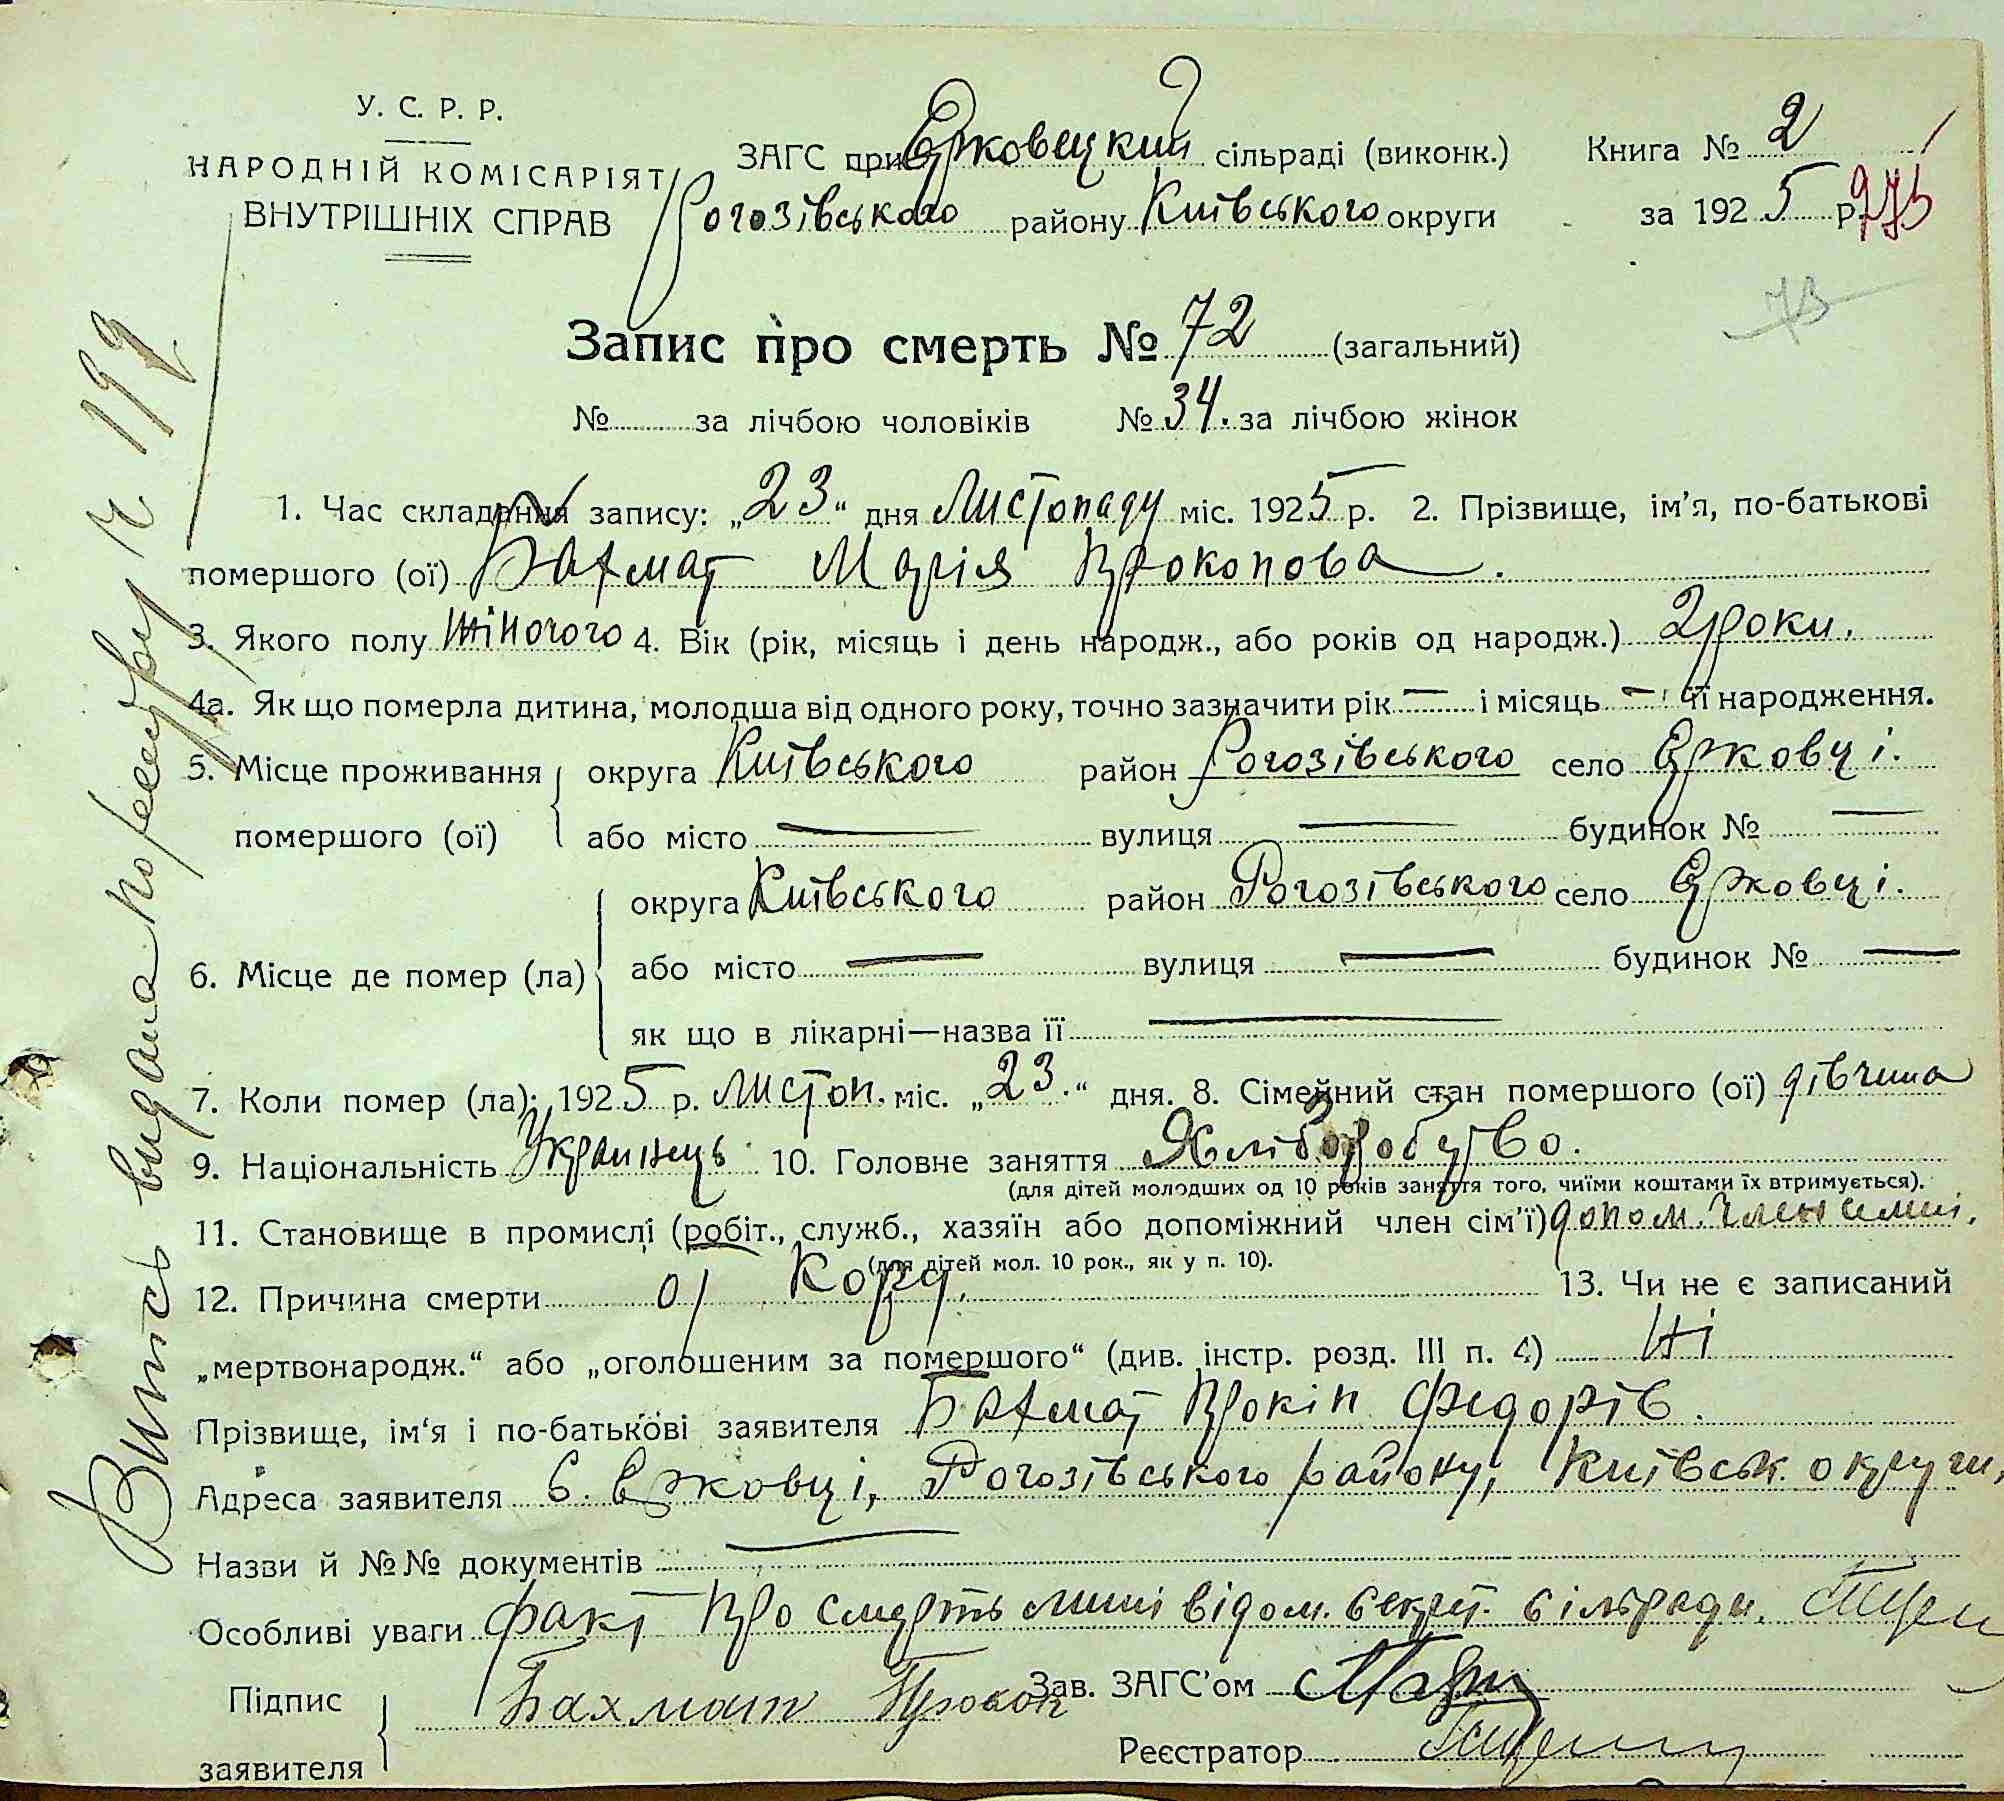 У. С. Р. Р.
НАРОДНІЙ КОМІСАРІЯТ
ВНУТРІШНІХ СПРАВ
ЗАГС при Єрковецкий сільраді (виконк.) Книга № 2
Рогозівського району Київського округи за 1925 р.
73
Запис про смерть № 72 (загальний)
№ за лічбою чоловіків № 34. за лічбою жінок
1. Час складання запису: „23“ дня Листопаду міс. 1925 р. 2. Прізвище, ім'я, по-батькові
помершого (ої) Бахмат Марія Прокопова.
3. Якого полу жіночого 4. Вік (рік, місяць і день народж., або років од народж.) 2 роки.
4а. Як що померла дитина, молодша від одного року, точно зазначити рік — і місяць — її народження.
5. Місце проживання округа Київського район Рогозівського село Єрковці.
помершого (ої) або місто — вулиця — будинок № —
округа Київського район Рогозівського село Єрковці.
6. Місце де помер (ла) або місто — вулиця — будинок № —
як що в лікарні—назва її —
7. Коли помер (ла): 1925 р. листоп. міс. „23.“ дня. 8. Сімейний стан помершого (ої) дівчина
9. Національність Українець 10. Головне заняття Хліборобство.
(для дітей молодших од 10 років заняття того, чиїми коштами їх втримується).
11. Становище в промислі (робіт., служб., хазяїн або допоміжний член сім'ї) допом. член симиї.
(для дітей мол. 10 рок., як у п. 10).
12. Причина смерти от Корд. 13. Чи не є записаний
„мертвонародж.“ або „оголошеним за помершого“ (див. інстр. розд. III п. 4) Ні
Прізвище, ім'я і по-батькові заявителя Бахмат Прокіп Федорів.
Адреса заявителя с. Єрковці, Рогозівського району, Київськ. округи,
Назви й №№ документів —
Особливі уваги факт про смерть мині відом. секрет. сільради.
Підпис заявителя Бахмат Прокоп
Зав. ЗАГС'ом
Реєстратор
Випись видана по реєстру ч. 199